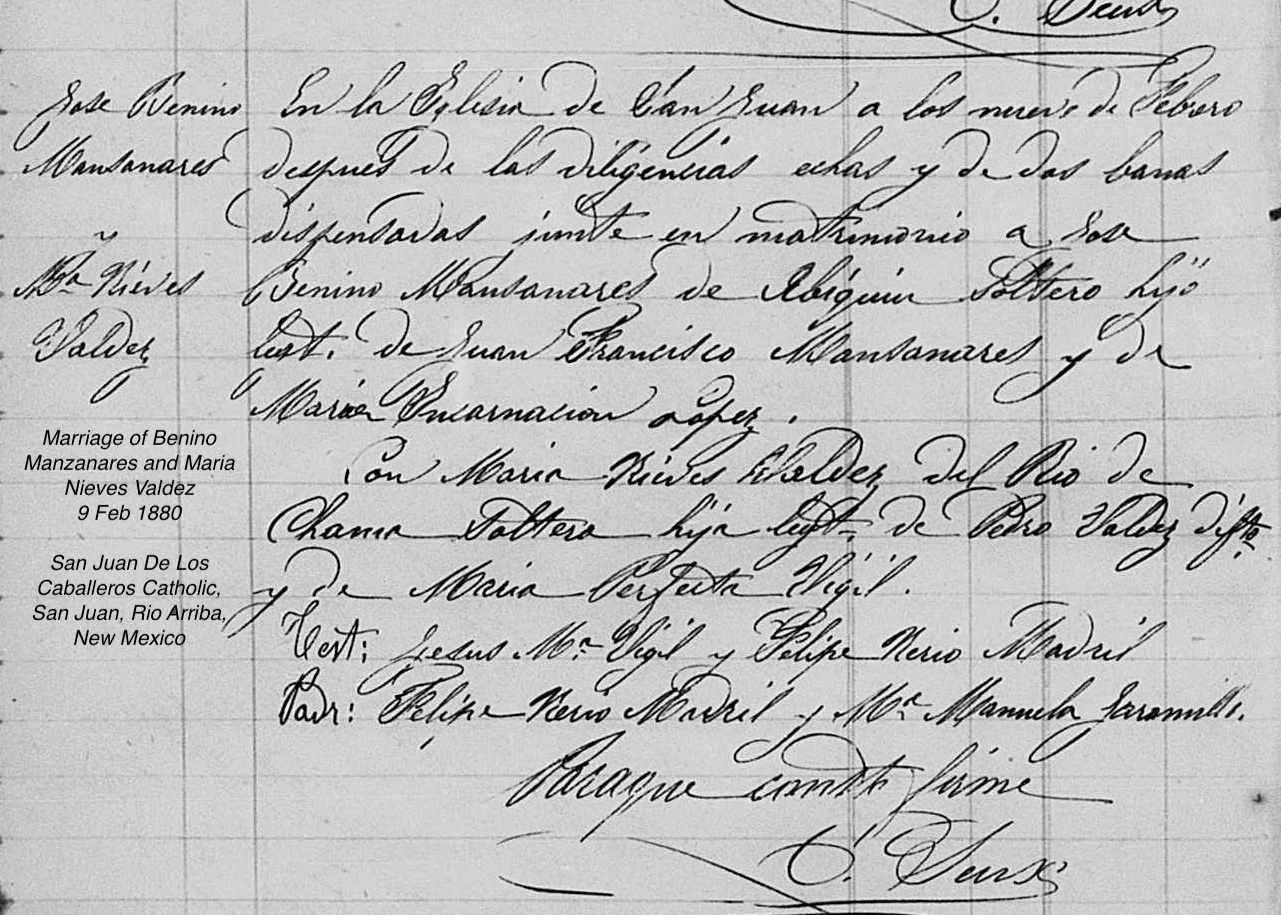 C. Seux
Jose Benino
Mansanares
y
Ma. Nieves
Valdez
En la Yglesia de San Juan a los nueve de Febrero
despues de las diligencias echas y de dos banas
dispensadas junte en matrimonio a Jose
Benino Mansanares de Abiquiu Soltero hijo
legt. de Juan Francisco Mansanares y de
Maria Encarnacion Lopez.
Con Maria Nieves Valdez del Rio de
Chama Soltera hija legt. de Pedro Valdez difto.
y de Maria Perfecta Vigil.
Test: Jesus Ma. Vigil y Felipe Nerio Madril
Padr: Felipe Nerio Madril y Ma. Manuela Jaramillo.
Paraque conste firme
C. Seux
Marriage of Benino
Manzanares and Maria
Nieves Valdez
9 Feb 1880
San Juan De Los
Caballeros Catholic,
San Juan, Rio Arriba,
New Mexico